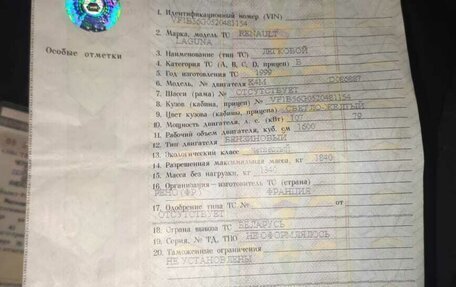 1. Идентификационный номер (VIN)
VF1B56G0520481154
2. Марка, модель ТС RENAULT
LAGUNA
3. Наименование (тип ТС) ЛЕГКОВОЙ
Особые отметки
4. Категория ТС (А, В, С, D, прицеп) В
5. Год изготовления ТС 1999
6. Модель, № двигателя K4M
7. Шасси (рама) № ОТСУТСТВУЕТ
8. Кузов (кабина, прицеп) № VF1B56G0520481154
9. Цвет кузова (кабины, прицепа) СВЕТЛО-ЖЕЛТЫЙ
10. Мощность двигателя, л. с. (кВт) 107 79
11. Рабочий объем двигателя, куб. см 1600
12. Тип двигателя БЕНЗИНОВЫЙ
13. Экологический класс
14. Разрешенная максимальная масса, кг 1840
15. Масса без нагрузки, кг 1340
16. Организация—изготовитель ТС (страна)
РЕНО (ФР) ФРАНЦИЯ
17. Одобрение типа ТС № от
ОТСУТСТВУЕТ
18. Страна вывоза ТС БЕЛАРУСЬ
19. Серия, № ТД, ТПО НЕ ОФОРМЛЯЛОСЬ
20. Таможенные ограничения
НЕ УСТАНОВЛЕНЫ